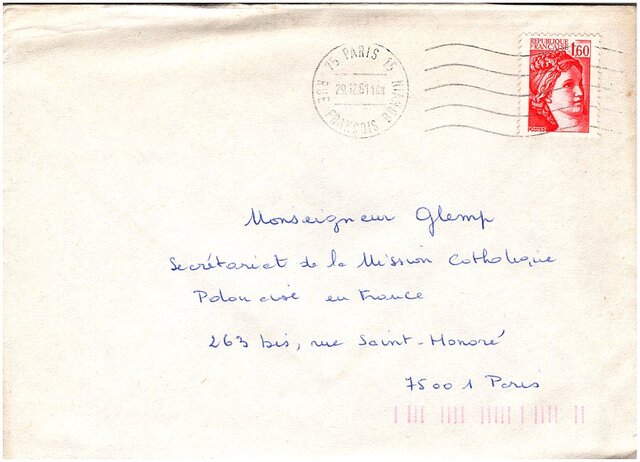 75 PARIS 16
29.12.81 18H
RUE FRANÇOIS BONVIN
REPUBLIQUE
FRANÇAISE
1,60
POSTES
Monseigneur Glemp
Secrétariat de la Mission Catholique
Polonaise en France
263 bis, rue Saint-Honoré
75001 Paris